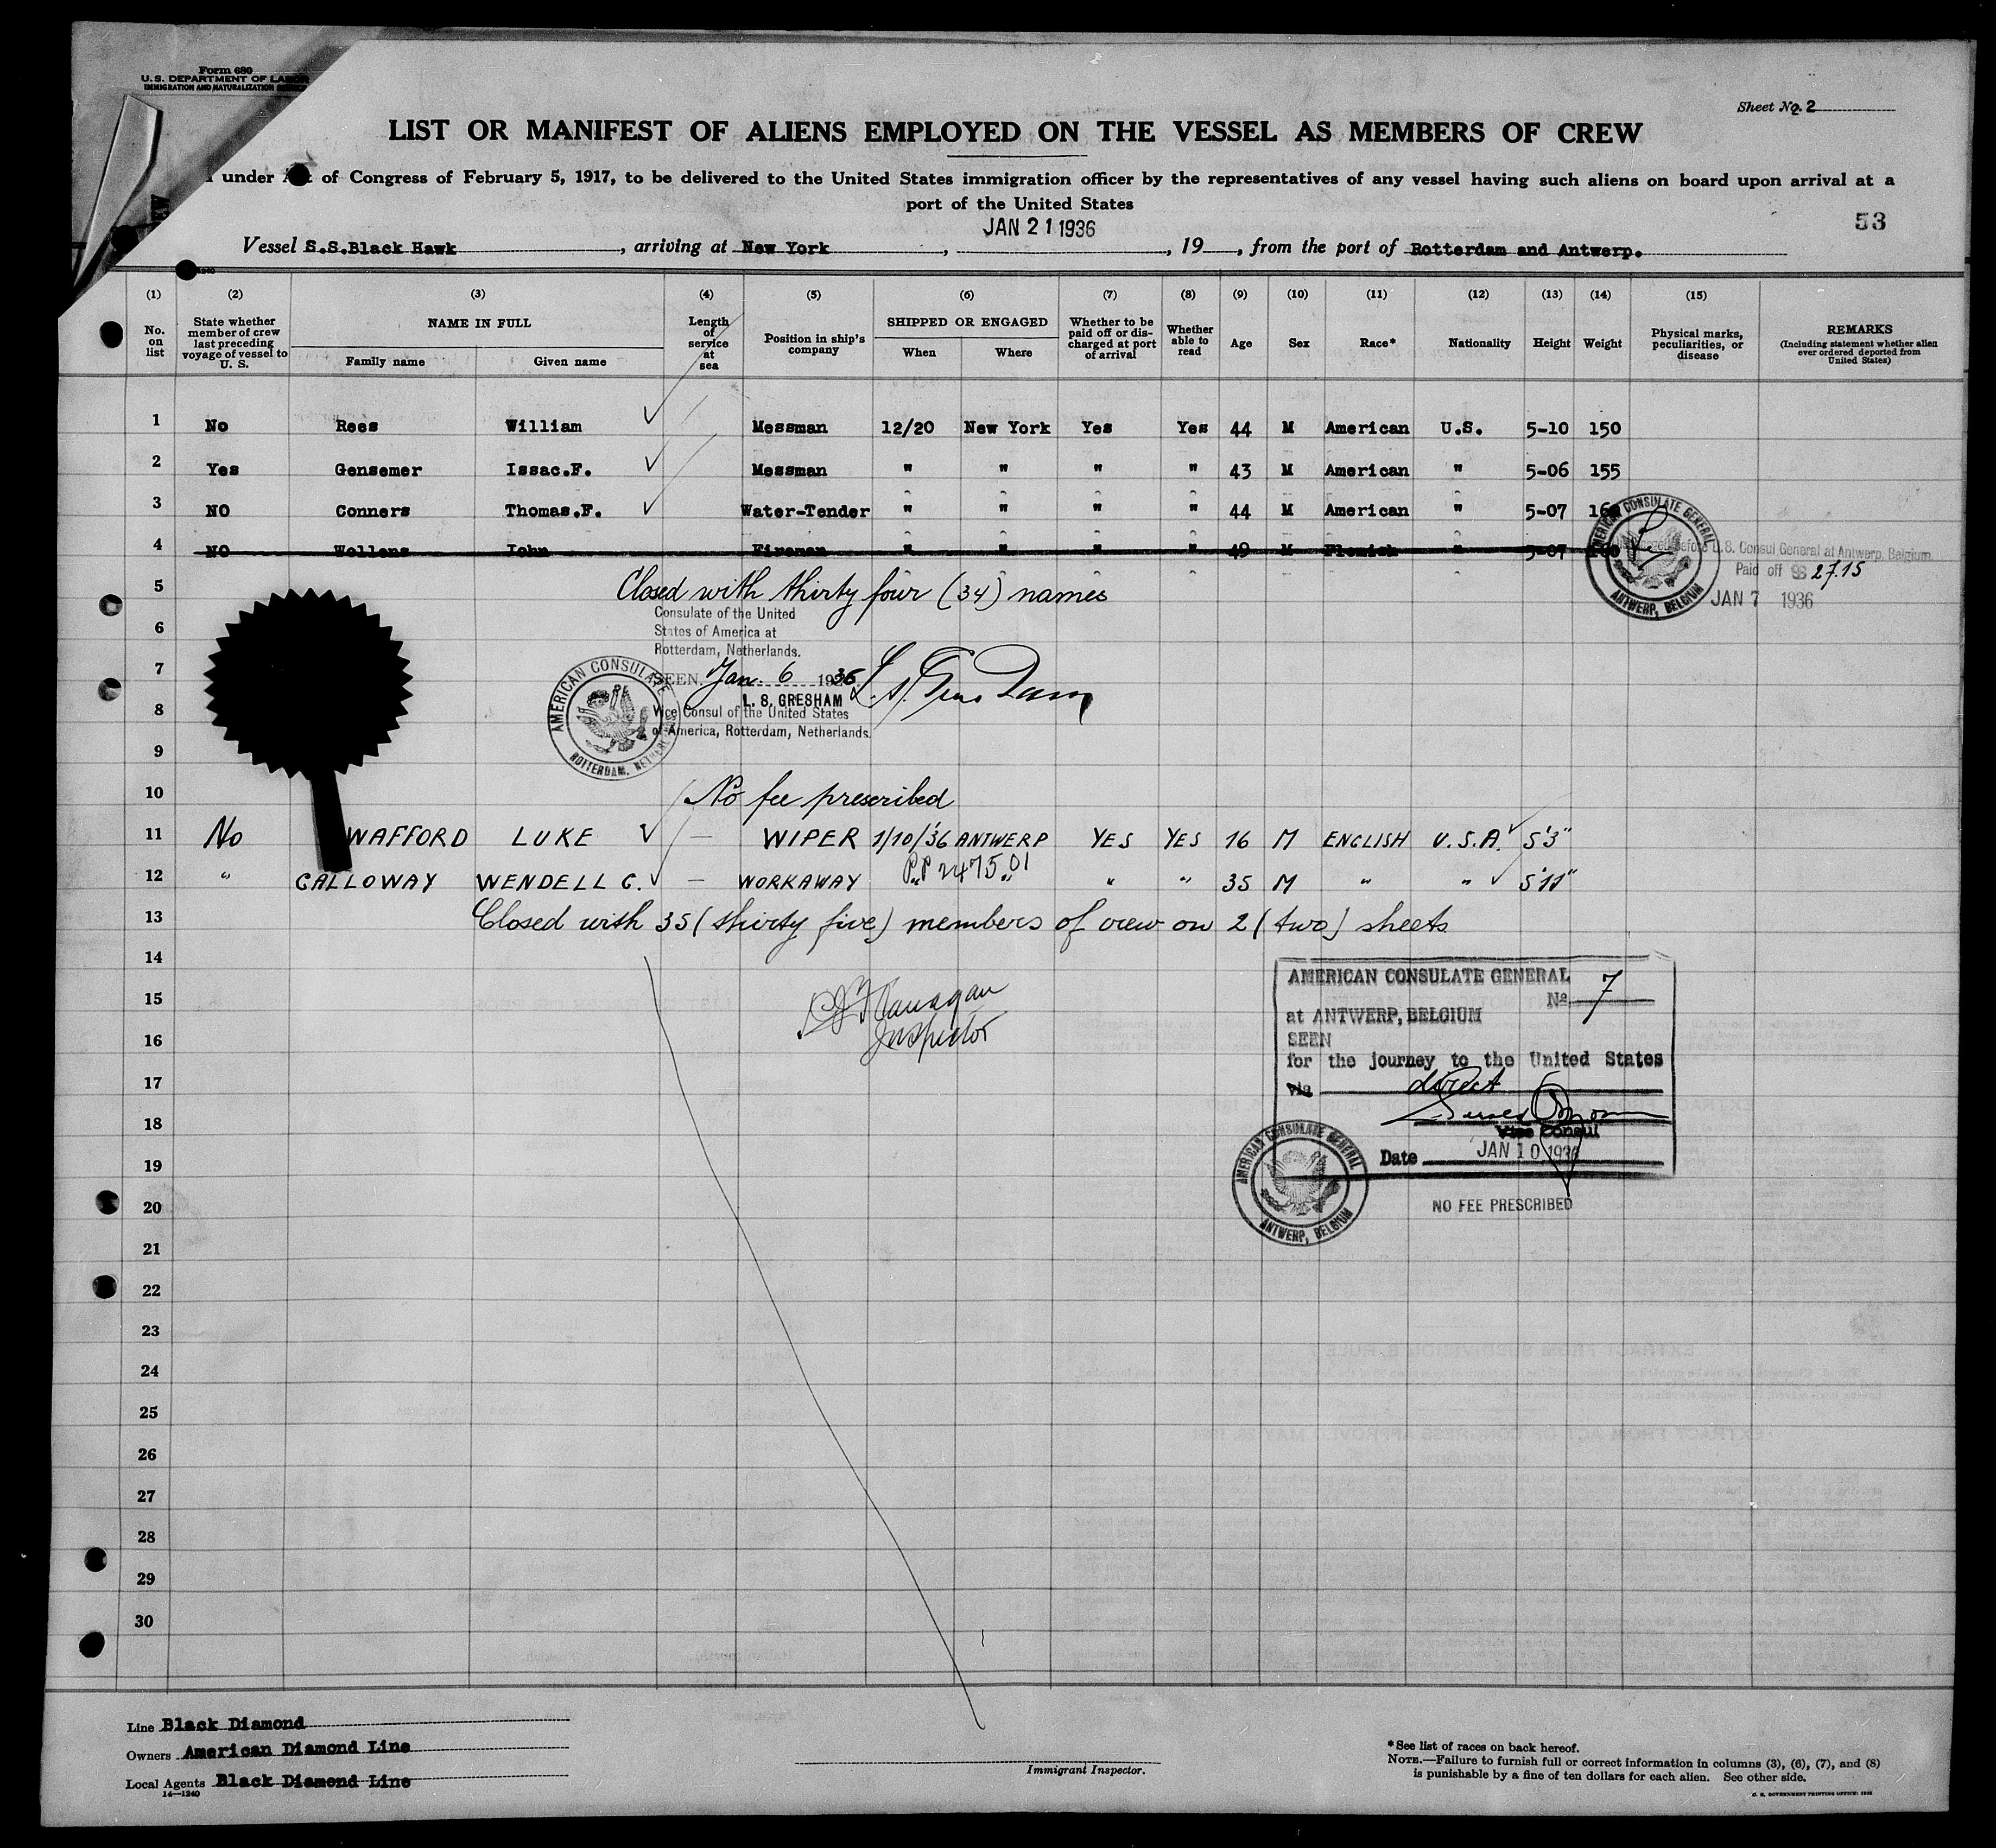 Form 680
U.S. DEPARTMENT OF LABOR
IMMIGRATION AND NATURALIZATION
Sheet No. 2
LIST OR MANIFEST OF ALIENS EMPLOYED ON THE VESSEL AS MEMBERS OF CREW
under Act of Congress of February 5, 1917, to be delivered to the United States immigration officer by the representatives of any vessel having such aliens on board upon arrival at a
port of the United States
53
JAN 21 1936
Vessel S.S.Black Hawk, arriving at New York, , 19 , from the port of Rotterdam and Antwerp.
(1) (2) (3) (4) (5) (6) (7) (8) (9) (10) (11) (12) (13) (14) (15)
No. on list
State whether member of crew last preceding voyage of vessel to U. S.
NAME IN FULL
Family name Given name
Length of service at sea
Position in ship's company
SHIPPED OR ENGAGED
When Where
Whether to be paid off or discharged at port of arrival
Whether able to read
Age Sex Race* Nationality Height Weight
Physical marks, peculiarities, or disease
REMARKS
(Including statement whether alien ever ordered deported from United States)
1 No Rees William Messman 12/20 New York Yes Yes 44 M American U.S. 5-10 150
2 Yes Gensemer Issac.F. Messman " " " " 43 M American " 5-06 155
3 NO Conners Thomas.F. Water-Tender " " " " 44 M American " 5-07 160
4 NO Wellens John Fireman " " " " 49 M Flemish " 5-07 160
AMERICAN CONSULATE GENERAL
ANTWERP, BELGIUM
before U.S. Consul General at Antwerp, Belgium
Paid off $ 27.15
JAN 7 1936
5 Closed with thirty four (34) names
Consulate of the United
States of America at
Rotterdam, Netherlands.
SEEN Jan. 6 1936
L. S. GRESHAM
Vice Consul of the United States
of America, Rotterdam, Netherlands.
AMERICAN CONSULATE
ROTTERDAM, NETHERLANDS
6
7
8
9
10 No fee prescribed
11 No WAFFORD LUKE — WIPER 1/10/36 ANTWERP YES YES 16 M ENGLISH U.S.A. 5'3"
P.P 247501
12 " CALLOWAY WENDELL C. — WORKAWAY " " " " 35 M " " 5'11"
13 Closed with 35 (thirty five) members of crew on 2 (two) sheets
14
15
Inspector
16
17
18
19
20
21
22
23
24
25
26
27
28
29
30
AMERICAN CONSULATE GENERAL
No 7
at ANTWERP, BELGIUM
SEEN
for the journey to the United States
via direct
Vice Consul
Date JAN 10 1936
AMERICAN CONSULATE GENERAL
ANTWERP, BELGIUM
NO FEE PRESCRIBED
Line Black Diamond
Owners American Diamond Line
Local Agents Black Diamond Line
14—1240
Immigrant Inspector.
*See list of races on back hereof.
NOTE.—Failure to furnish full or correct information in columns (3), (6), (7), and (8)
is punishable by a fine of ten dollars for each alien. See other side.
U. S. GOVERNMENT PRINTING OFFICE: